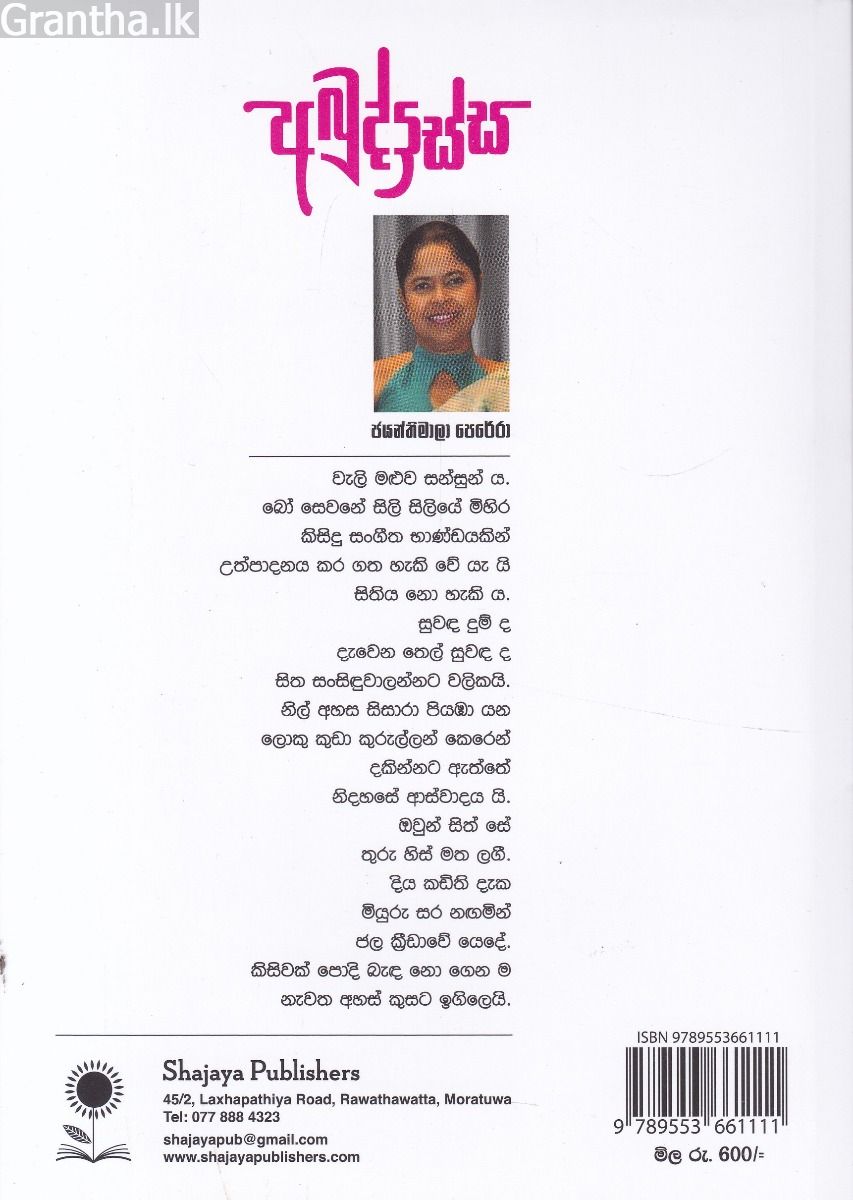 Grantha.lk
අබුද්දස්ස
ජයන්තිමාලා පෙරේරා
වැලි මළුව සන්සුන් ය.
බෝ සෙවනේ සිලි සිලියේ මිහිර
කිසිදු සංගීත භාණ්ඩයකින්
උත්පාදනය කර ගත හැකි වේ යැ යි
සිතිය නො හැකි ය.
සුවඳ දුම් ද
දැවෙන තෙල් සුවඳ ද
සිත සංසිඳුවාලන්නට වලිකයි.
නිල් අහස සිසාරා පියඹා යන
ලොකු කුඩා කුරුල්ලන් කෙරෙන්
දකින්නට ඇත්තේ
නිදහසේ ආස්වාදය යි.
ඔවුන් සිත් සේ
තුරු හිස් මත ලගී.
දිය කඩිති දැක
මියුරු සර නඟමින්
ජල ක්‍රීඩාවේ යෙදේ.
කිසිවක් පොදි බැඳ නො ගෙන ම
නැවත අහස් කුසට ඉගිලෙයි.
Shajaya Publishers
45/2, Laxhapathiya Road, Rawathawatta, Moratuwa
Tel: 077 888 4323
shajayapub@gmail.com
www.shajayapublishers.com
ISBN 9789553661111
9 789553 661111
මිල රු. 600/=